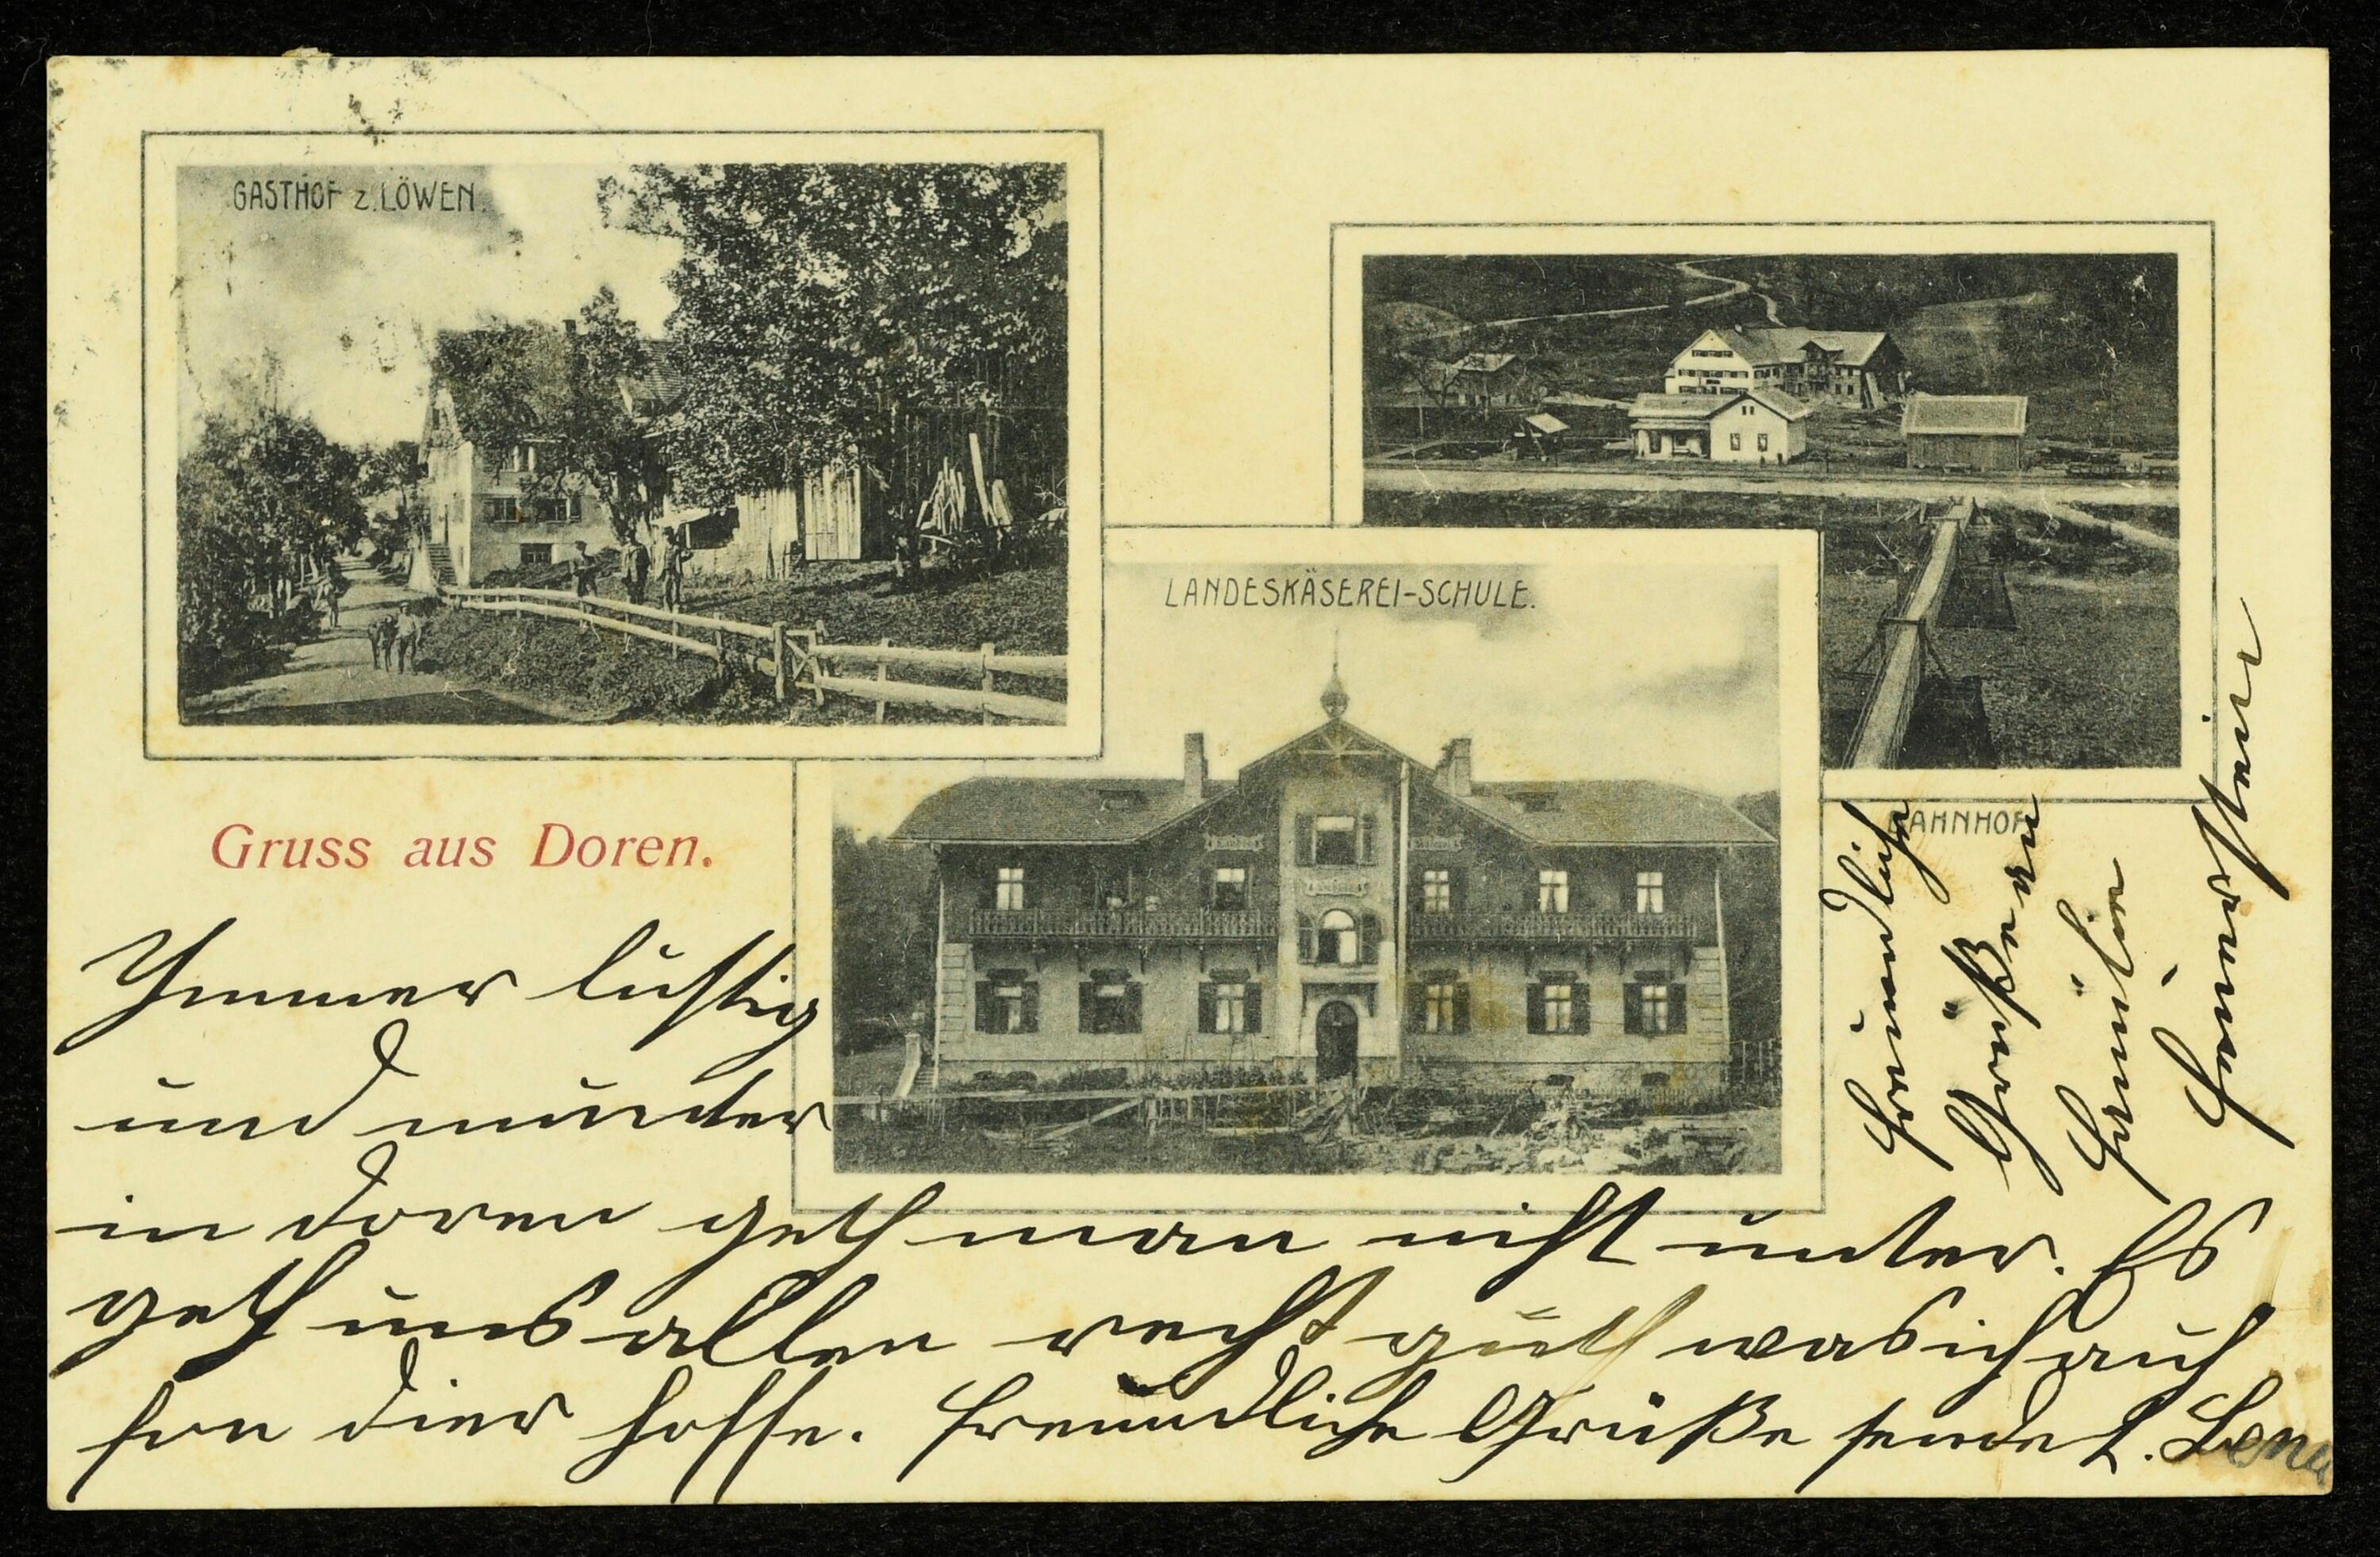 GASTHOF z. LÖWEN.
LANDESKÄSEREI-SCHULE.
BAHNHOF
Gruss aus Doren.
Immer lustig
und munter
in Doren geth man nicht unter. Es
geth uns allen recht guth was ich auch
fon dier hoffe. Freundliche Grüße sendet. Lena
Freundlich
Grüße
Fräulin
Feuerstein